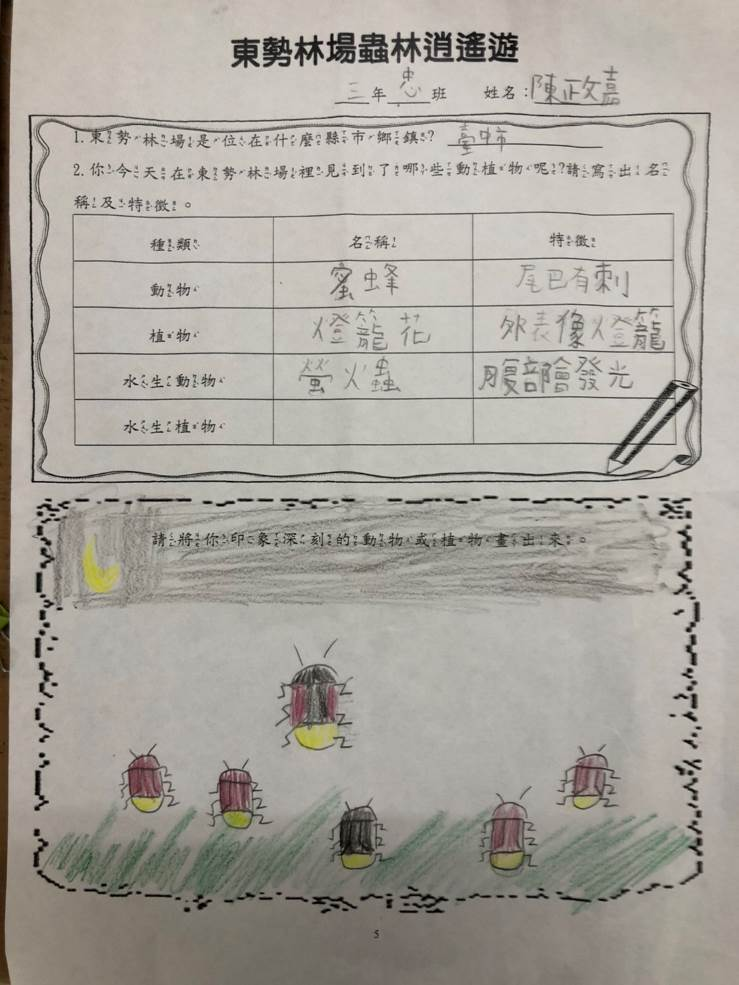 東勢林場蟲林逍遙遊
三年忠班 姓名:陳正玫嘉
1. 東勢林場是位在什麼縣市鄉鎮? 臺中市
2. 你今天在東勢林場裡見到了哪些動植物呢?請寫出名
稱及特徵。
種類 名稱 特徵
動物 蜜蜂 尾巴有刺
植物 燈籠花 外表像燈籠
水生動物 螢火蟲 腹部會發光
水生植物
請將你印象深刻的動物或植物畫出來。
5